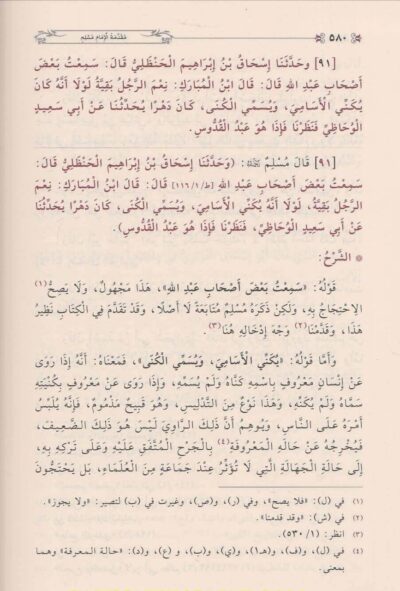 ٥٨٠ مُقَدِّمَةُ الإِمَامِ مُسْلِمٍ
[٩١] وَحَدَّثَنَا إِسْحَاقُ بْنُ إِبْرَاهِيمَ الْحَنْظَلِيُّ قَالَ: سَمِعْتُ بَعْضَ
أَصْحَابِ عَبْدِ اللهِ قَالَ: قَالَ ابْنُ الْمُبَارَكِ: نِعْمَ الرَّجُلُ بَقِيَّةُ لَوْلَا أَنَّهُ كَانَ
يُكَنِّي الْأَسَامِيَ، وَيُسَمِّي الْكُنَى، كَانَ دَهْرًا يُحَدِّثُنَا عَنْ أَبِي سَعِيدٍ
الْوُحَاظِيِّ فَنَظَرْنَا فَإِذَا هُوَ عَبْدُ الْقُدُّوسِ.
[٩١] قَالَ مُسْلِمٌ ﵀: (وَحَدَّثَنَا إِسْحَاقُ بْنُ إِبْرَاهِيمَ الْحَنْظَلِيُّ قَالَ:
سَمِعْتُ بَعْضَ أَصْحَابِ عَبْدِ اللهِ [ط/١/١١٦] قَالَ: قَالَ ابْنُ الْمُبَارَكِ: نِعْمَ
الرَّجُلُ بَقِيَّةُ، لَوْلَا أَنَّهُ يُكَنِّي الْأَسَامِيَ، وَيُسَمِّي الْكُنَى، كَانَ دَهْرًا يُحَدِّثُنَا
عَنْ أَبِي سَعِيدٍ الْوُحَاظِيِّ، فَنَظَرْنَا فَإِذَا هُوَ عَبْدُ الْقُدُّوسِ).
* الشَّرْحُ:
قَوْلُهُ: «سَمِعْتُ بَعْضَ أَصْحَابِ عَبْدِ اللهِ»، هَذَا مَجْهُولٌ، وَلَا يَصِحُّ(١)
الِاحْتِجَاجُ بِهِ، وَلَكِنْ ذَكَرَهُ مُسْلِمٌ مُتَابَعَةً لَا أَصْلًا، وَقَدْ تَقَدَّمَ فِي الْكِتَابِ نَظِيرُ
هَذَا، وَقَدَّمْنَا(٢) وَجْهَ إِدْخَالِهِ هُنَا(٣).
وَأَمَّا قَوْلُهُ: «يُكَنِّي الْأَسَامِيَ، وَيُسَمِّي الْكُنَى»، فَمَعْنَاهُ: أَنَّهُ إِذَا رَوَى
عَنْ إِنْسَانٍ مَعْرُوفٍ بِاسْمِهِ كَنَّاهُ وَلَمْ يُسَمِّهِ، وَإِذَا رَوَى عَنْ مَعْرُوفٍ بِكُنْيَتِهِ
سَمَّاهُ وَلَمْ يُكَنِّهِ، وَهَذَا نَوْعٌ مِنَ التَّدْلِيسِ، وَهُوَ قَبِيحٌ مَذْمُومٌ، فَإِنَّهُ يُلَبِّسُ
أَمْرَهُ عَلَى النَّاسِ، وَيُوهِمُ أَنَّ ذَلِكَ الرَّاوِيَ لَيْسَ هُوَ ذَلِكَ الضَّعِيفَ،
فَيُخْرِجُهُ عَنْ حَالِهِ الْمَعْرُوفَةِ(٤) بِالْجَرْحِ الْمُتَّفَقِ عَلَيْهِ وَعَلَى تَرْكِهِ بِهِ،
إِلَى حَالَةِ الْجَهَالَةِ الَّتِي لَا تُؤَثِّرُ عِنْدَ جَمَاعَةٍ مِنَ الْعُلَمَاءِ، بَلْ يَحْتَجُّونَ
(١) في (ل): «فلا يصح»، وفي (ر)، و(ص)، وغيرت في (ب) لتصير: «ولا يجوز».
(٢) في (ش): «وقد قدمنا».
(٣) انظر: (١/ ٥٣٠).
(٤) في (ل)، و(ف)، و(هـ)، و(ي)، و(ب)، و (ع)، و(د): «حالة المعرفة» وهما
بمعنى.